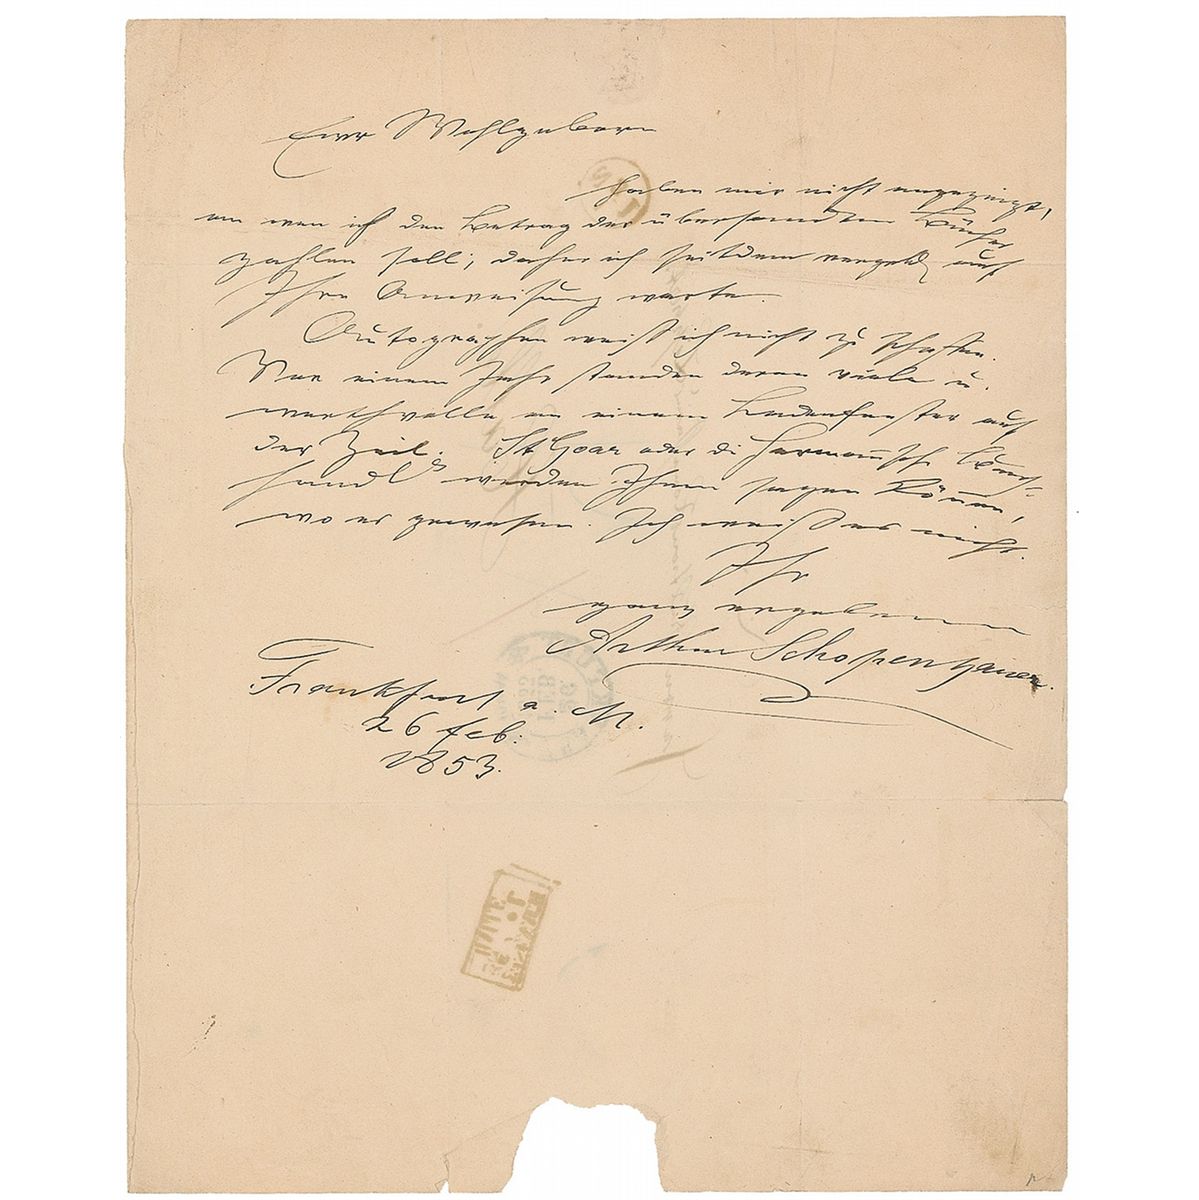 Ewr Wohlgeboren
haben mir nicht angezeigt,
an wen ich den Betrag der übersandten Bücher
zahlen soll; daher ich seitdem vergebl auf
Ihre Anweisung warte.
Autographen weiß ich nicht zu schaffen.
Vor einem Jahr standen deren viele u.
werthvolle an einem Ladenfenster auf
der Zeil. St Goar oder die Hermannsche Buch-
handlg werden Ihnen sagen können,
wo er gewesen. Ich weiß es nicht.
Ihr
ganz ergebener
Arthur Schopenhauer.
Frankfurt a. M.
26 Feb.
1853.